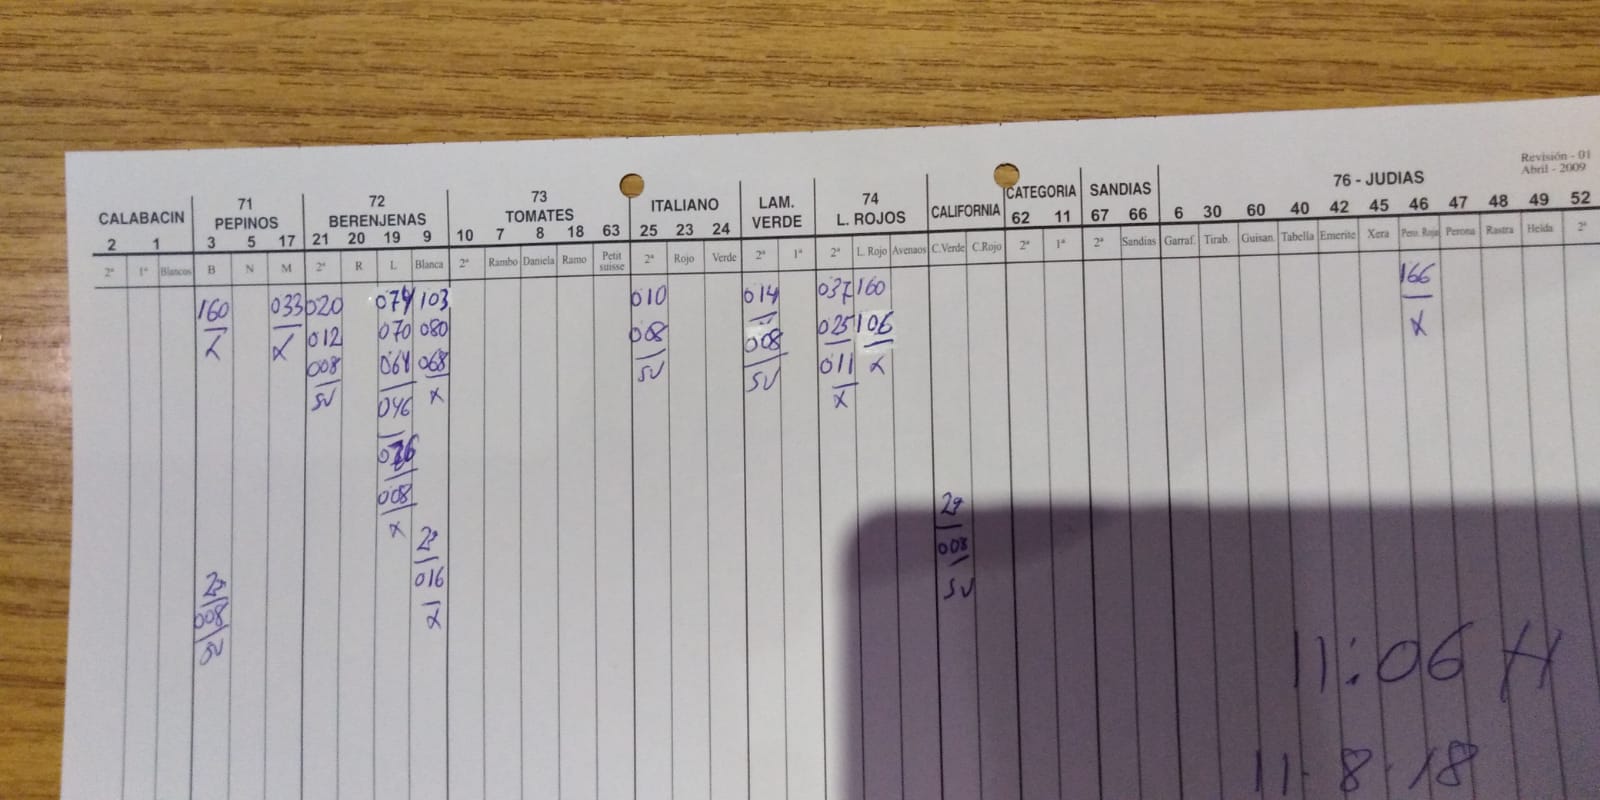 Revisión - 01
Abril - 2009
CALABACIN 71 PEPINOS 72 BERENJENAS 73 TOMATES ITALIANO LAM. VERDE 74 L. ROJOS CALIFORNIA CATEGORIA SANDIAS 76 - JUDIAS
2 1 3 5 17 21 20 19 9 10 7 8 18 63 25 23 24 62 11 67 66 6 30 60 40 42 45 46 47 48 49 52
2ª 1ª Blancos B N M 2ª R L Blanca 2ª Rambo Daniela Ramo Petit suisse 2ª Rojo Verde 2ª 1ª 2ª L. Rojo Avenaos C.Verde C.Rojo 2ª 1ª 2ª Sandias Garraf. Tirab. Guisan. Tabella Emerite Xera Pero. Roja Perona Rastra Helda 2ª
160 033 020 079 103 010 014 037 160 166
X X 012 070 080 008 008 025 106 X
008 064 068 SV SV 011 X
SV 046 X X
036
008
X
2ª 2ª
008 016 008
SV X SV
11:06 H
11-8-18